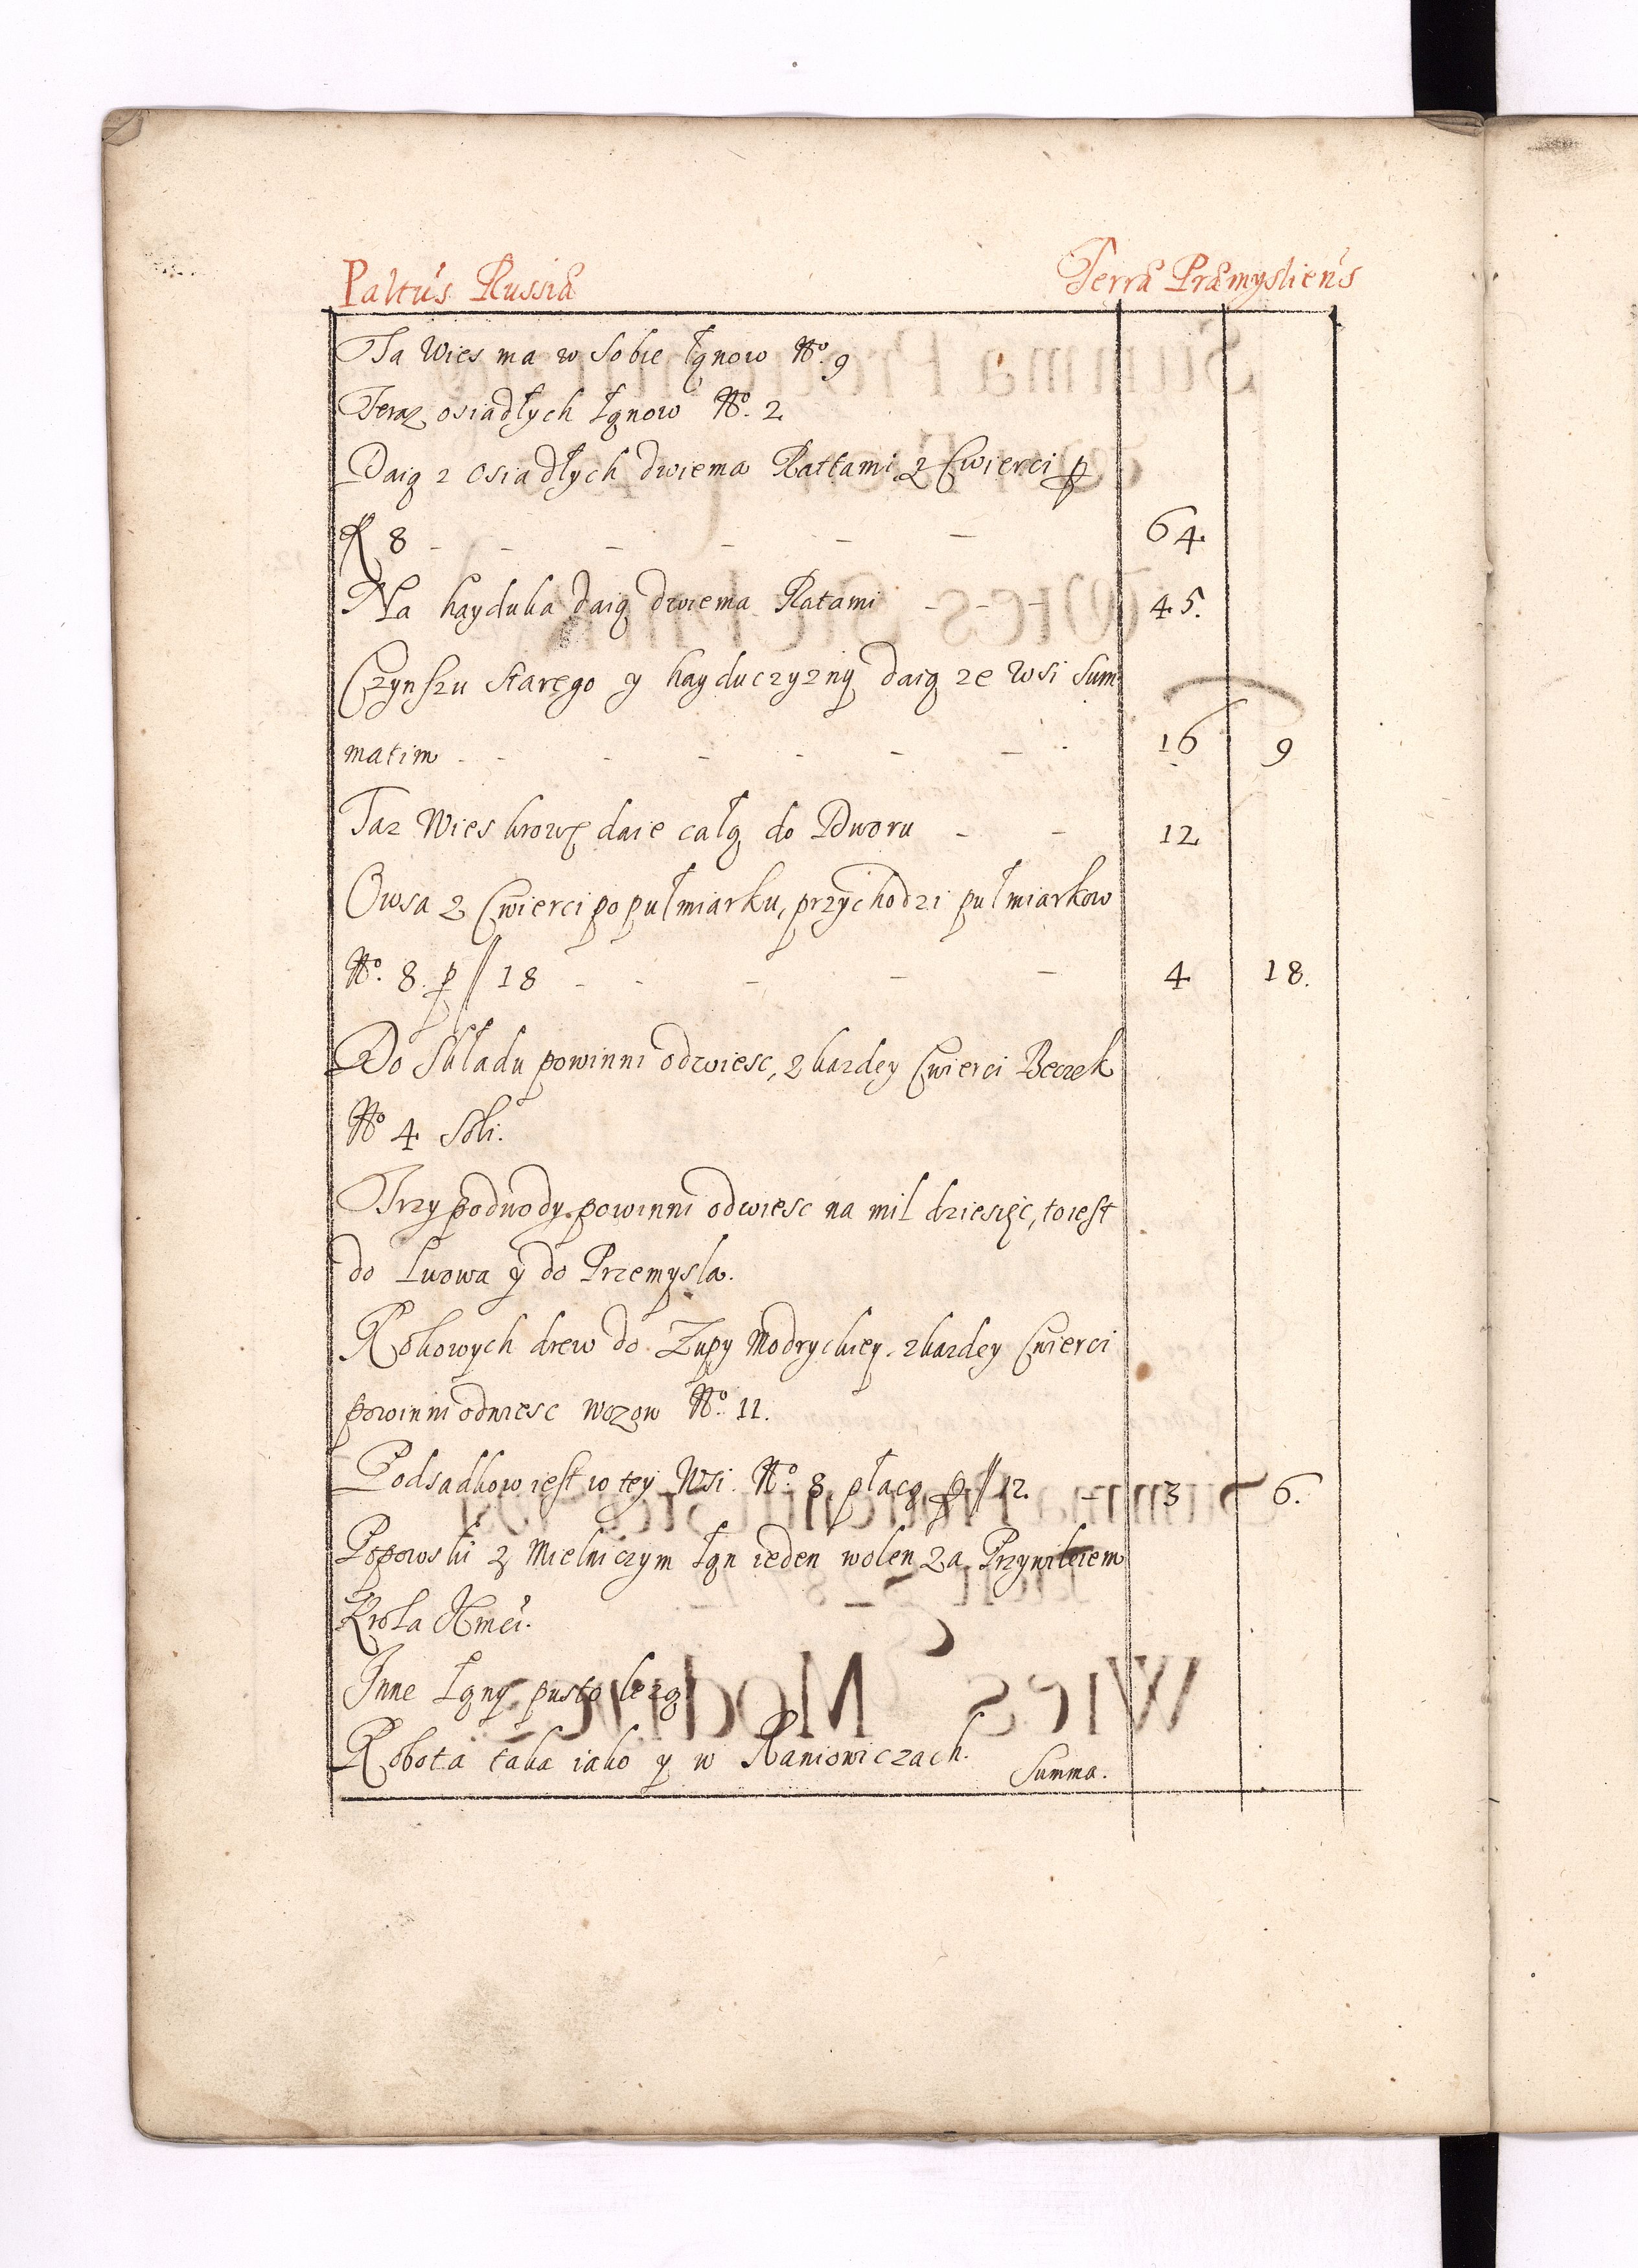 Paltus Russiæ Terræ Præmysliens
Ta Wies ma w sobie Łąnow No. 9
Teraz osiadłych Łąnow No. 2
Daią z osiadłych dwiema Rattami z Cwierci p
R 8 - - - - - - 64.
Na hayduka daią dwiema Ratami - - - 45.
Czynszu starego y hayduczyzny daią ze Wsi Sum
matim - - - - - - - 16 9
Taz Wies krowę daie całą do Dworu - - 12
Owsa z Cwierci po pułmiarku, przychodzi pułmiarkow
No. 8. p ʃʃ 18 - - - - - 4 18.
Do Składu powinni odwiesc, z kazdey Cwierci Beczek
No 4 Soli.
Trzy podwody powinni odwiesc na mil dziesięć, to iest
do Lwowa y do Przemysla.
Rokowych drew do Zupy Modryckiey. z kazdey Cwierci
powinni odwiesc wozow No. 11.
Podsadkow iest w tey Wsi. No. 8 płacą p ʃʃ 12. - 3 6.
Popowski z Mielniczym Łąn ieden wolen za Przywileiem
Krola Jmci.
Inne Łąny pusto lezą
Robota taka iako y w Raniowiczach. Summa.